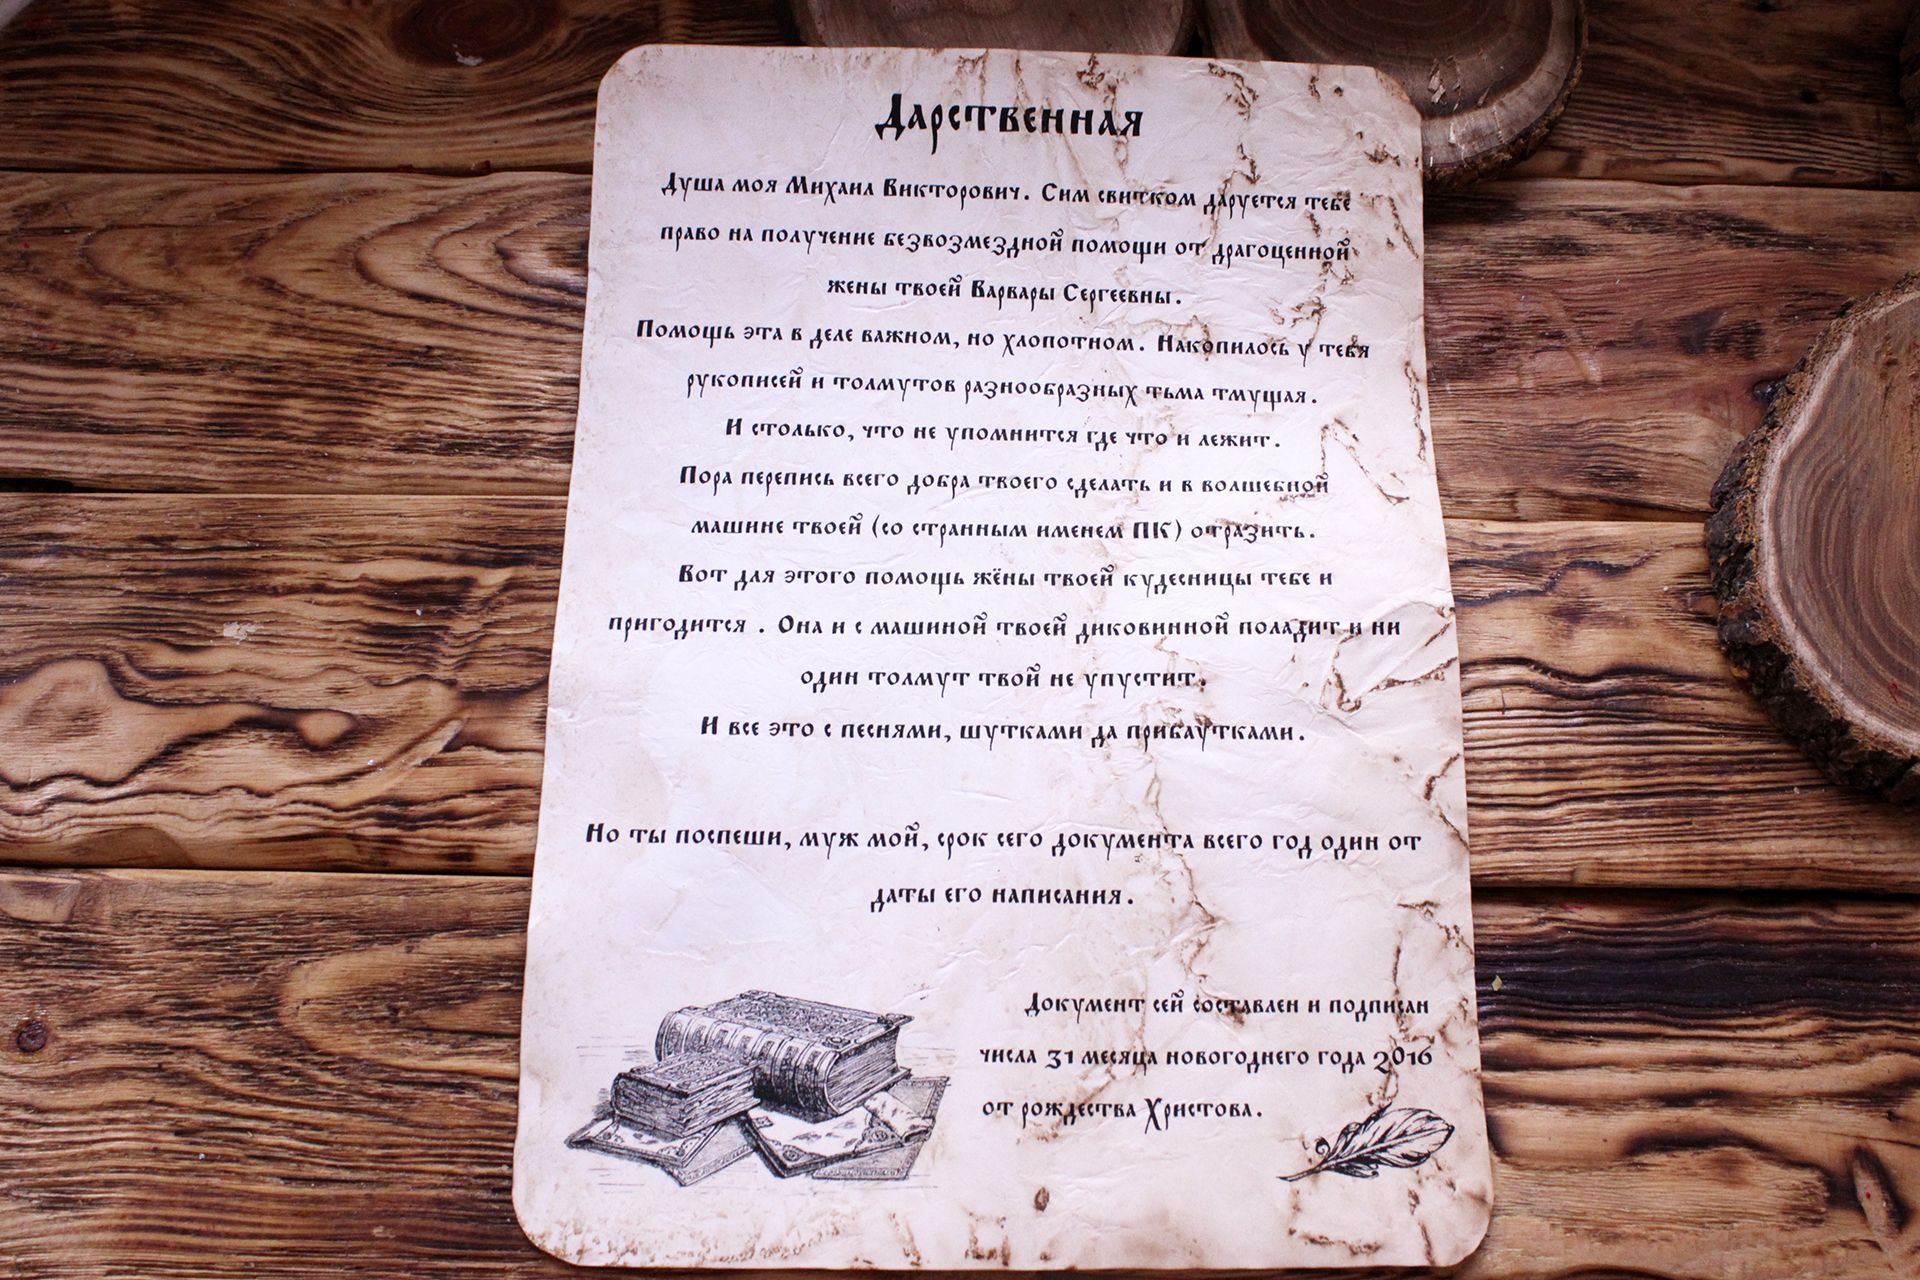 Дарственная
Душа моя Михаил Викторович. Сим свитком даруется тебе
право на получение безвозмездной помощи от драгоценной
жены твоей Варвары Сергеевны.
Помощь эта в деле важном, но хлопотном. Накопилось у тебя
рукописей и толмутов разнообразных тьма тмущая.
И столько, что не упомнится где что и лежит.
Пора перепись всего добра твоего сделать и в волшебной
машине твоей (со странным именем ПК) отразить.
Вот для этого помощь жёны твоей кудесницы тебе и
пригодится . Она и с машиной твоей диковинной поладит и ни
один толмут твой не упустит.
И все это с песнями, шутками да прибаутками.
Но ты поспеши, муж мой, срок сего документа всего год один от
даты его написания.
Документ сей составлен и подписан
числа 31 месяца новогоднего года 2016
от рождества Христова.